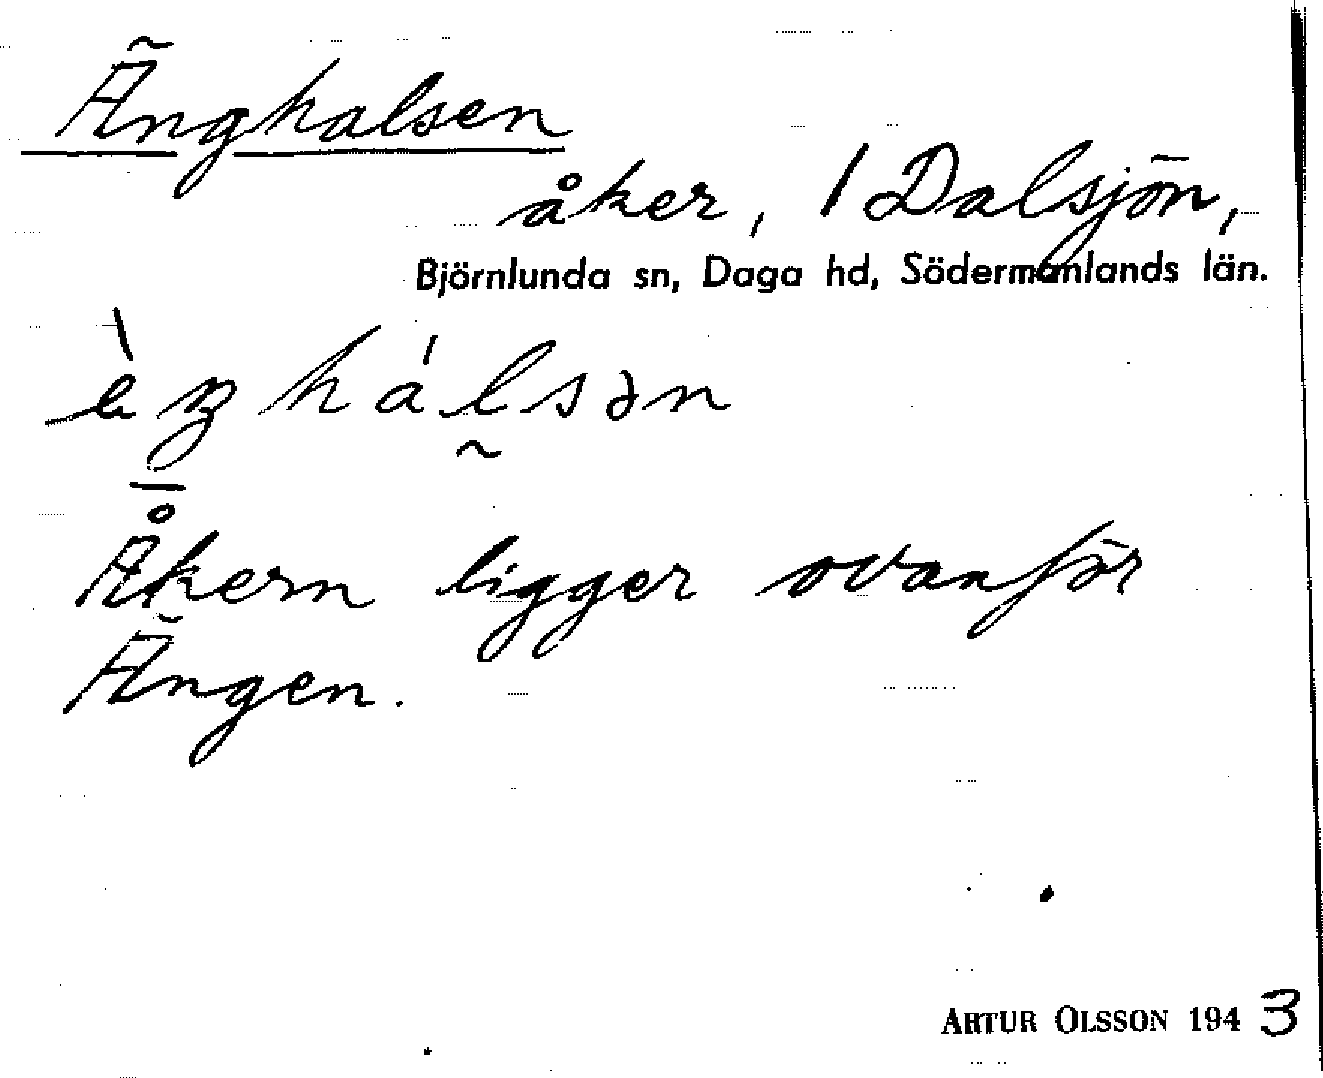 Änghalsen
åker, / Dalsjön,
Björnlunda sn, Daga hd, Södermanlands län.
Åkern ligger ovanför
Ängen.
ARTUR OLSSON 1943